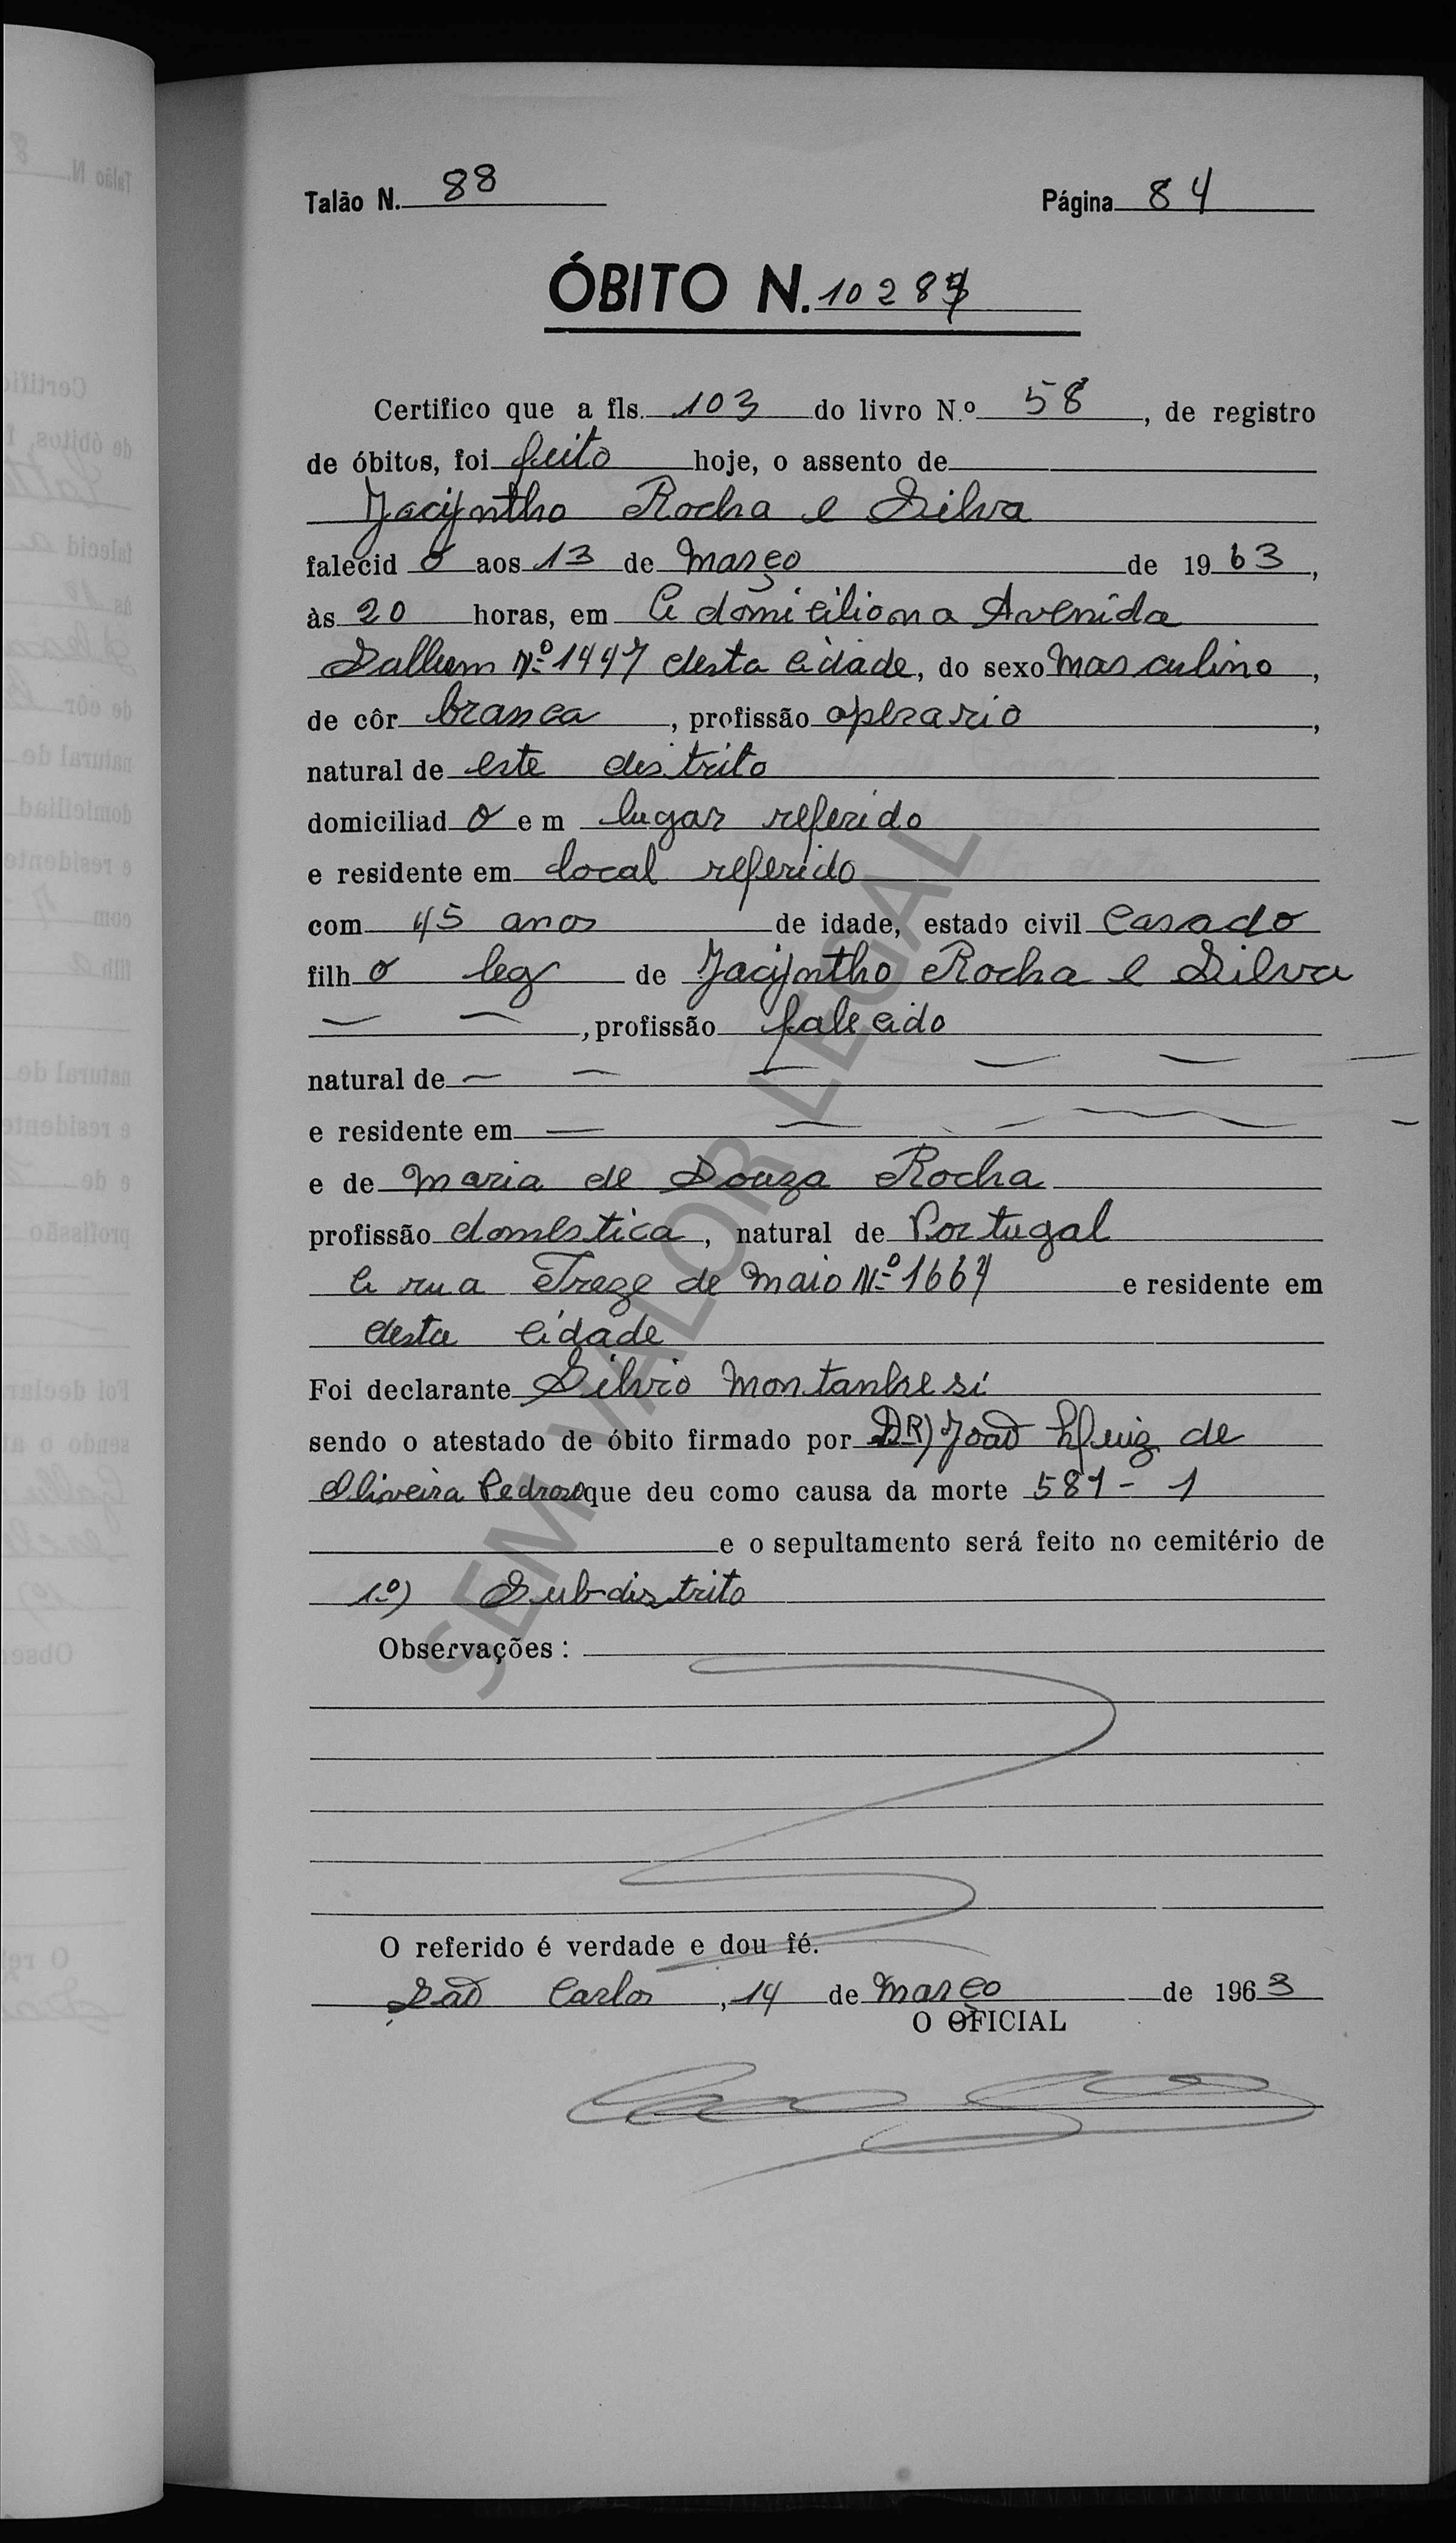 Talão N. 88 Página 84
ÓBITO N. 1028
Certifico que a fls. 103 do livro N.º 58, de registro
de óbitos, foi feito hoje, o assento de
Jacyntho Rocha e Silva
falecido aos 13 de março de 1963,
às 20 horas, em a domicilio na Avenida
Sallum Nº 1447 desta cidade, do sexo masculino,
de côr branca, profissão operario,
natural de este distrito
domiciliado em lugar referido
e residente em local referido
com 45 anos de idade, estado civil casado
filho leg de Jacyntho Rocha e Silva
— — , profissão falecido
natural de — — — — — —
e residente em — — — — — —
e de Maria de Souza Rocha
profissão domestica, natural de Portugal
a rua Treze de Maio Nº 1664 e residente em
desta cidade
Foi declarante Silvio Montanhesi
sendo o atestado de óbito firmado por DR) João de
Oliveira que deu como causa da morte 581 - 1
e o sepultamento será feito no cemitério de
1º) Subdistrito
Observações:
O referido é verdade e dou fé.
São Carlos, 14 de março de 1963
O OFICIAL
SEM VALOR LEGAL